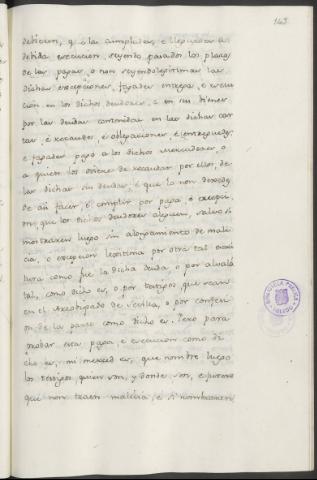 143
debieren, q.e las cumplades, e lleguedes a
debida execucion, seyendo pasados los plazos
de las pagas, o non seyendo legitimas las
dichas excepciones, fagades entrega, e execu
cion en los dichos deudores, e en sus bienes
por las deudas contenidas en las dichas car
tas, e recaudos, e obligaciones, e entreguedes,
e fagades pago a los dichos mercadores, o
a quien los oviere de recaudar por ellos, de
las dichas sus deudas, e que la non dexedes
de asi facer, e complir por paga, o excepci
on, que los dichos deudores aleguen, salvo si
mostraren luego sin alongamiento de mali
cia, o excepcion legitima por otra tal escri
tura como fue la dicha deuda, o por alvalá
tal, como dicho es, o por testigos, que sean
en el Arzobispado de Sevilla, o por confesi
on de la parte como dicho es. Pero para
probar esta paga, e excepcion como di
cho es, mi merced es, que nombre luego
los testigos, quien son, y donde son, e jure
que non traen malicia, e si nombraren
BIBLIOTECA PUBLICA
TOLEDO